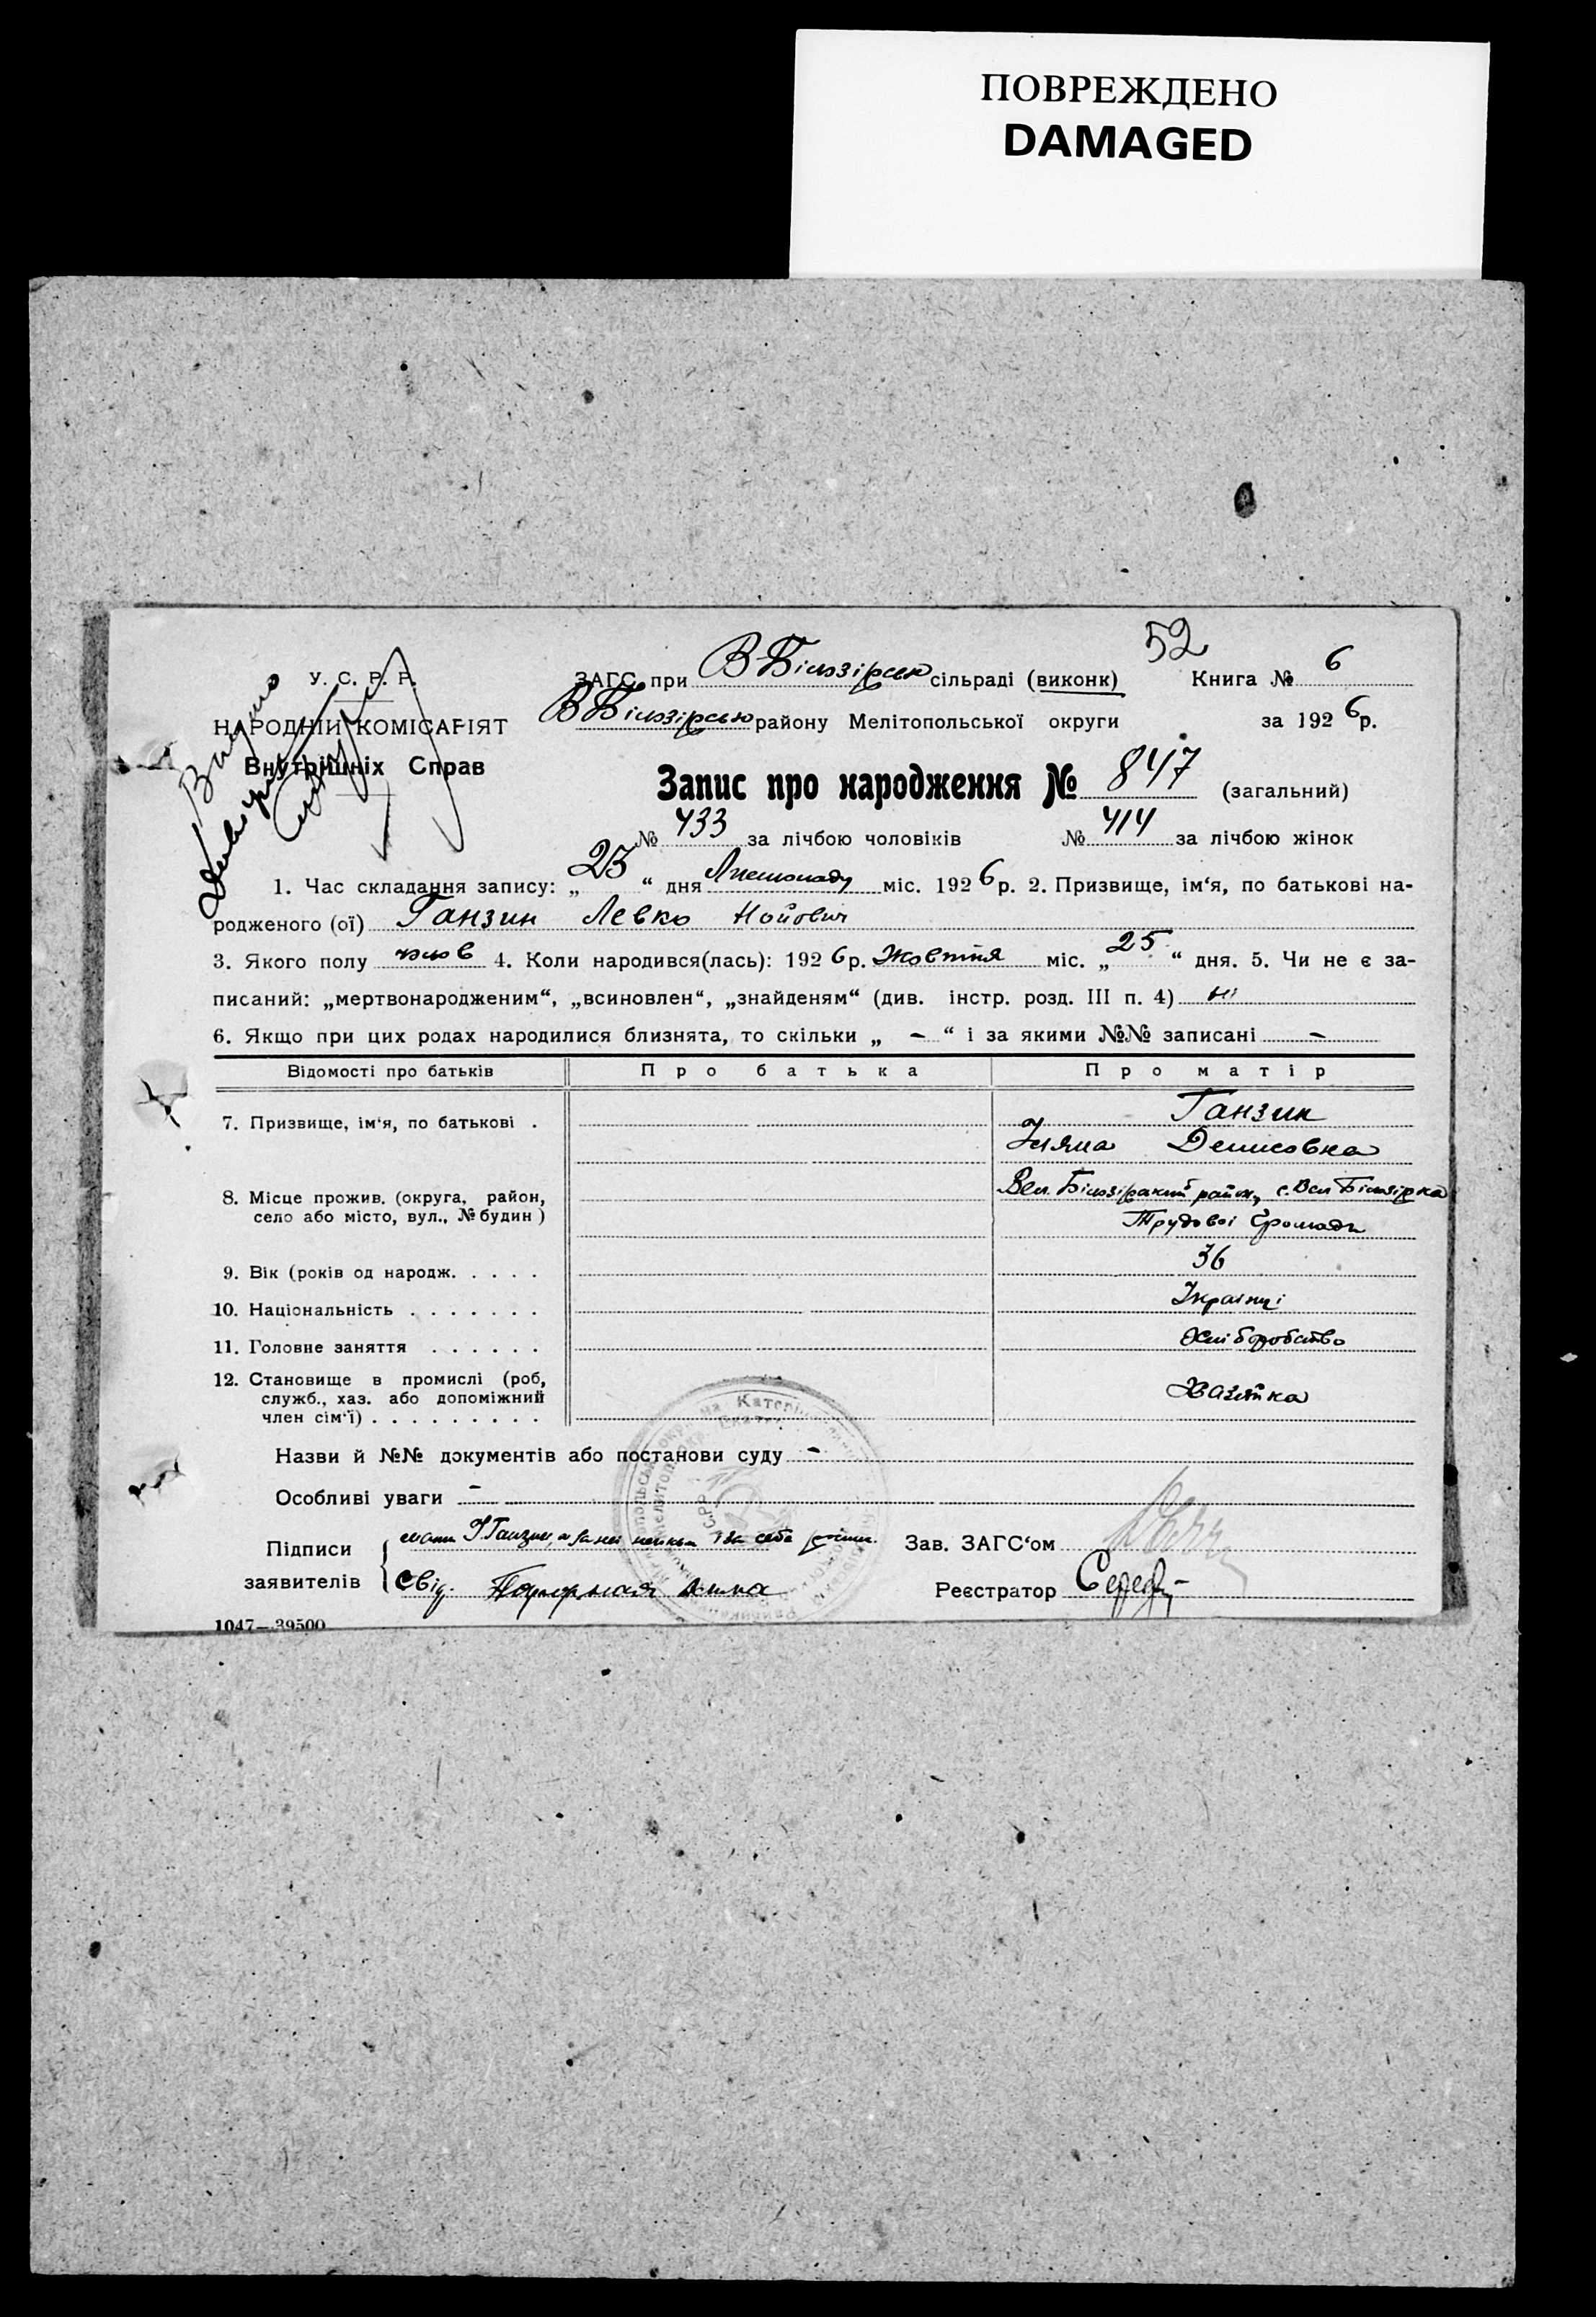 ПОВРЕЖДЕНО
DAMAGED
52
У. С. Р. Р.
НАРОДНІЙ КОМІСАРІЯТ
Внутрішніх Справ
Видано
ЗАГС при В Білозірськ сільраді (виконк) Книга № 6
В Білозірсько району Мелітопольської округи за 1926 р.
Запис про народження № 847 (загальний)
№ 433 за лічбою чоловіків № 414 за лічбою жінок
1. Час складання запису: „23“ дня Листопаду міс. 1926 р. 2. Призвище, ім‘я, по батькові на-
родженого (ої) Ганзин Левко Нойович
3. Якого полу чолов 4. Коли народився(лась): 1926 р. Жовтня міс. „25“ дня. 5. Чи не є за-
писаний: „мертвонародженим“, „всиновлен“, „знайденям“ (див. інстр. розд. III п. 4) ні
6. Якщо при цих родах народилися близнята, то скільки „ – “ і за якими №№ записані –
Відомості про батьків Про батька Про матір
7. Призвище, ім‘я, по батькові . Ганзин
Денисовна
8. Місце прожив. (округа, район, Вел. Білозірський район, с. Вел Білозірка
село або місто, вул., № будин) Трудової Громади
9. Вік (років од народж. . . . . 36
10. Національність . . . . . . . Українці
11. Головне заняття . . . . . . Хліборобство
12. Становище в промислі (роб, служб., хаз. або допоміжний член сім‘ї) . . . . . . . . . Хазяйка
Назви й №№ документів або постанови суду –
Особливі уваги –
Підписи мати Ганзин, Зав. ЗАГС‘ом
заявителів Свід. Реєстратор
1047—39500